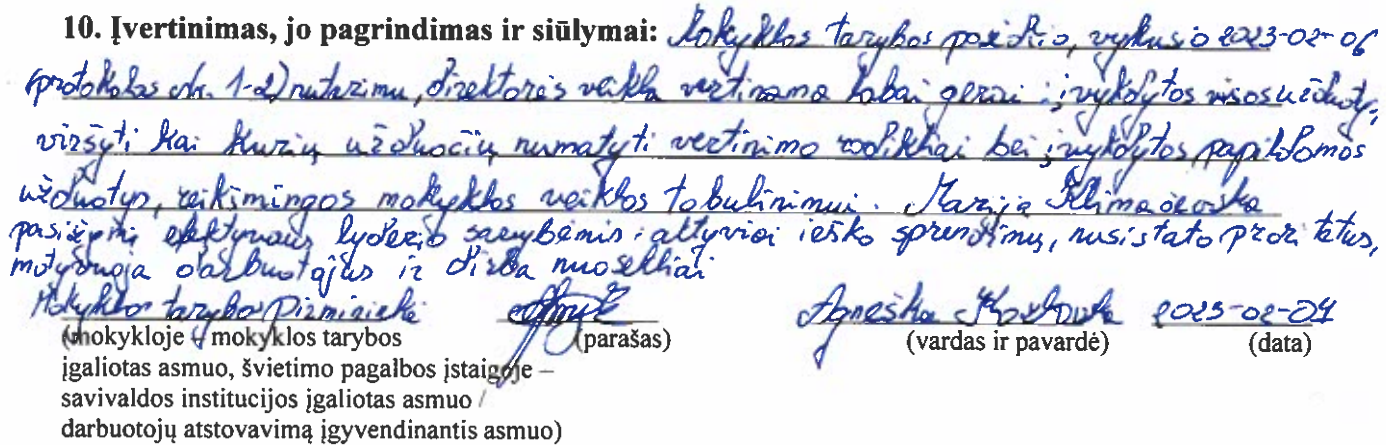 10. Įvertinimas, jo pagrindimas ir siūlymai: Mokyklos tarybos posėdžio, vykusio 2023-02-06
(protokolas Nr. 1-2) nutarimu, direktorės veikla vertinama labai gerai: įvykdytos visos užduotys,
viršyti kai kurių užduočių numatyti vertinimo rodikliai bei įvykdytos papildomos
užduotys, reikšmingos mokyklos veiklos tobulinimui. Marija Klimaševska
pasižymi efektyvaus lyderio savybėmis: aktyviai ieško sprendimų, nusistato prioritetus,
motyvuoja darbuotojus ir dirba nuosekliai
Mokyklos tarybos pirmininkė Agneška 2023-02-07
(mokykloje – mokyklos tarybos (parašas) (vardas ir pavardė) (data)
įgaliotas asmuo, švietimo pagalbos įstaigoje –
savivaldos institucijos įgaliotas asmuo /
darbuotojų atstovavimą įgyvendinantis asmuo)